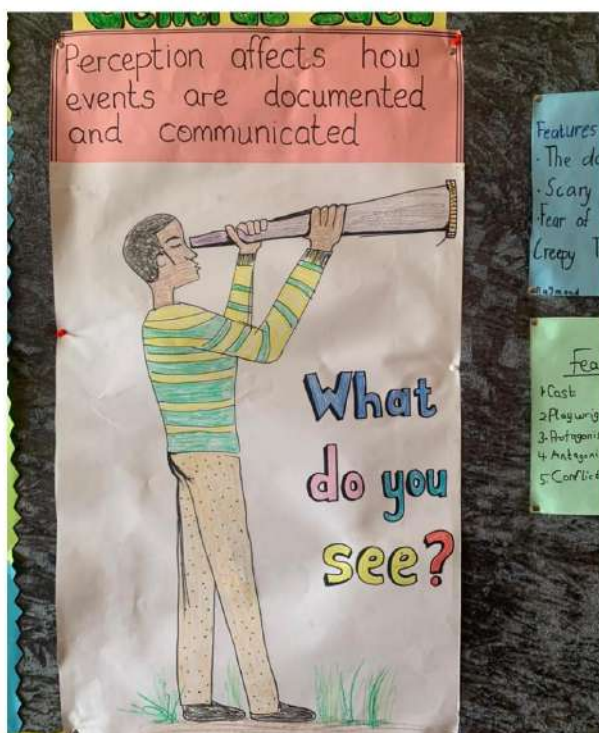 Perception affects how
events are documented
and communicated
What
do you
see?
Features
• The
• Scary
• Fear of
Creepy
Fea
1. Cast
2. Playwrig
3. Protagonis
4. Antagoni
5. Conflict